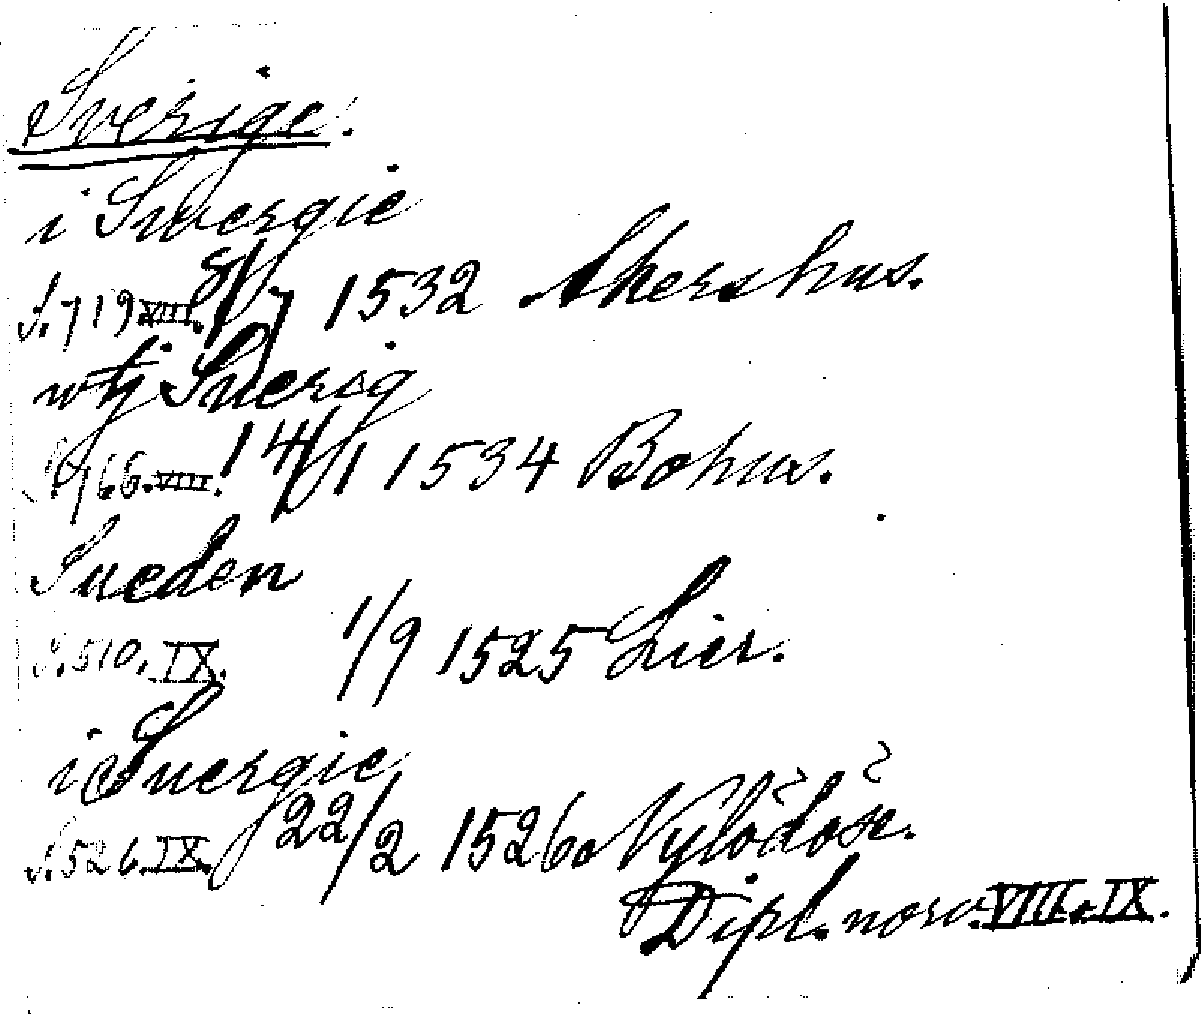 Sverige.
i Swergie
S. 719 VIII. 8/7 1532 Akershus.
wtj Suerig
S. 766. VIII. 14/1 1534 Bohus.
Sueden
S. 510. IX. 1/9 1525 Lier.
i Suergie
S. 526. IX. 22/2 1526. Nylödöse.
Dipl. norv. VIII. IX.